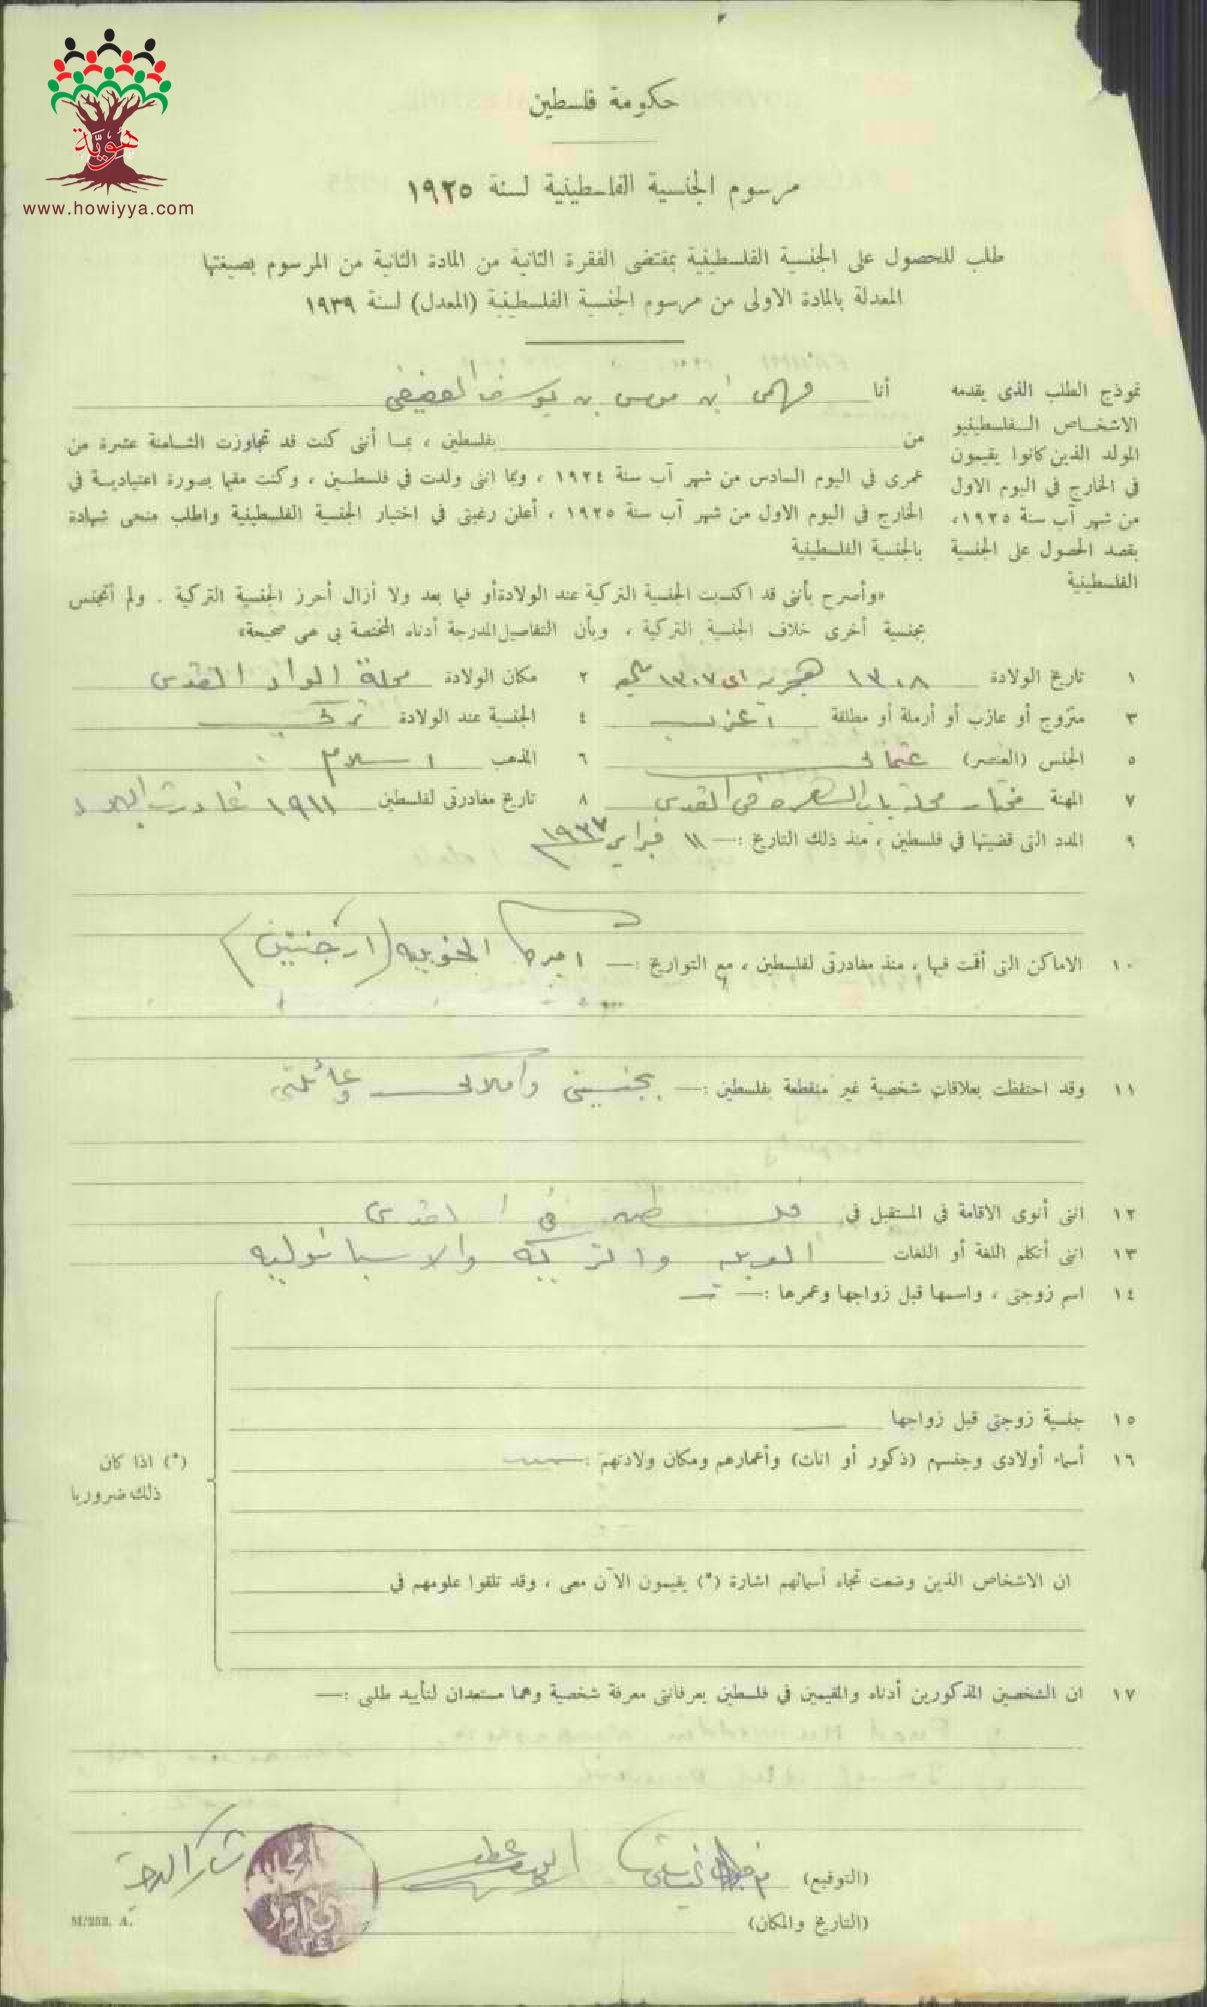 هُوِيَّة
www.howiyya.com
حكومة فلسطين
مرسوم الجنسية الفلسطينية لسنة ١٩٢٥
طلب للحصول على الجنسية الفلسطينية بمقتضى الفقرة الثانية من المادة الثانية من المرسوم بصيغتها
المعدلة بالمادة الاولى من مرسوم الجنسية الفلسطينية (المعدل) لسنة ١٩٣٩
نموذج الطلب الذى يقدمه
الاشخاص الفلسطينيو
المولد الذين كانوا يقيمون
في الخارج في اليوم الاول
من شهر آب سنة ١٩٢٥،
بقصد الحصول على الجنسية
الفلسطينية
أنا فهمى ابن موسى بن يوسف
من بفلسطين ، بما أننى كنت قد تجاوزت الثامنة عشرة من
عمرى في اليوم السادس من شهر آب سنة ١٩٢٤ ، وبما اننى ولدت في فلسطين ، وكنت مقيما بصورة اعتيادية في
الخارج في اليوم الاول من شهر آب سنة ١٩٢٥ ، أعلن رغبتى في اختيار الجنسية الفلسطينية واطلب منحى شهادة
بالجنسية الفلسطينية
«وأصرح بأننى قد اكتسبت الجنسية التركية عند الولادة أو فيما بعد ولا أزال أحرز الجنسية التركية . ولم أتجنس
بجنسية أخرى خلاف الجنسية التركية ، وبأن التفاصيل المدرجة أدناه المختصة بى هى صحيحة»
١ تاريخ الولادة ١٣٠٨ هجريه اى ١٣٠٧
٢ مكان الولادة محلة الواد القدس
٣ متزوج أو عازب أو أرملة أو مطلقة أعزب
٤ الجنسية عند الولادة تركى
٥ الجنس (العنصر) عثمانى
٦ المذهب اسلام
٧ المهنة مختار محلة باب الساهرة فى القدس
٨ تاريخ مغادرتى لفلسطين ١٩١١ غادرت البلاد
٩ المدد التى قضيتها في فلسطين ، منذ ذلك التاريخ :— ١١ فبراير ١٩٣٧
١٠ الاماكن التى أقمت فيها ، منذ مغادرتى لفلسطين ، مع التواريخ :— اميركا الجنوبيه (ارجنتين)
١١ وقد احتفظت بعلاقات شخصية غير منقطعة بفلسطين :— بجنسيتى وأملاكى وعائلتى
١٢ اننى أنوى الاقامة في المستقبل في فلسطين في القدس
١٣ اننى أتكلم اللغة أو اللغات العربيه والتركيه والاسبانوليه
١٤ اسم زوجتى ، واسمها قبل زواجها وعمرها :—
١٥ جنسية زوجتى قبل زواجها
١٦ أسماء أولادى وجنسهم (ذكور أو اناث) وأعمارهم ومكان ولادتهم :
(*) اذا كان
ذلك ضروريا
ان الاشخاص الذين وضعت تجاه أسمائهم اشارة (*) يقيمون الآن معى ، وقد تلقوا علومهم في
١٧ ان الشخصين المذكورين أدناه والمقيمين في فلسطين يعرفاننى معرفة شخصية وهما مستعدان لتأييد طلبى :—
(التوقيع)
(التاريخ والمكان)
M/252. A.